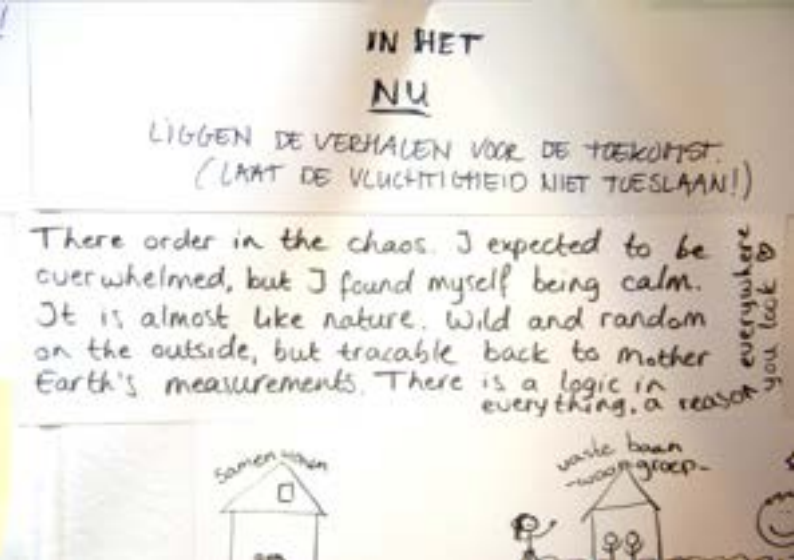 IN HET
NU
LIGGEN DE VERHALEN VOOR DE TOEKOMST.
(LAAT DE VLUCHTIGHEID NIET TOESLAAN!)
There order in the chaos. I expected to be
overwhelmed, but I found myself being calm.
It is almost like nature. Wild and random
on the outside, but tracable back to mother
Earth's measurements. There is a logic in
everything, a reason
everywhere
you look
samen wonen
vaste baan
-woongroep-